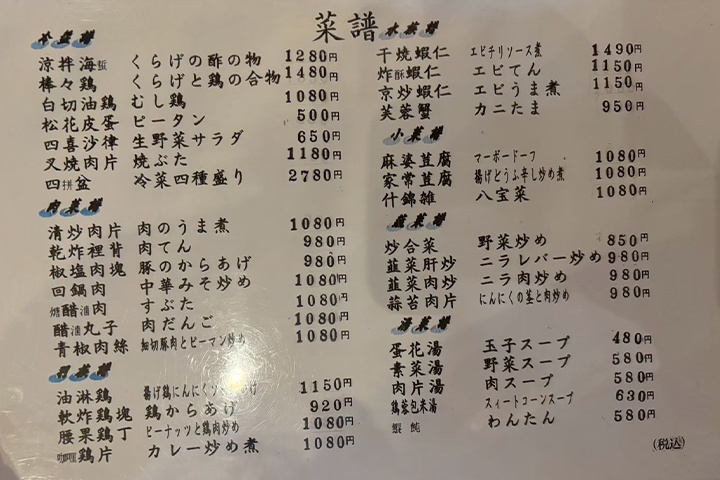 菜譜
冷菜譜
涼拌海蜇 くらげの酢の物 1280円
棒々鶏 くらげと鶏の合物 1480円
白切油鶏 むし鶏 1080円
松花皮蛋 ピータン 500円
四喜沙律 生野菜サラダ 650円
叉焼肉片 焼ぶた 1180円
四拼盆 冷菜四種盛り 2780円
肉菜譜
清炒肉片 肉のうま煮 1080円
乾炸裡背 肉てん 980円
椒塩肉塊 豚のからあげ 980円
回鍋肉 中華みそ炒め 1080円
糖醋油肉 すぶた 1080円
醋油丸子 肉だんご 1080円
青椒肉絲 細切豚肉とピーマン炒め 1080円
羽菜譜
油淋鶏 揚げ鶏にんにくソースかけ 1150円
軟炸鶏塊 鶏からあげ 920円
腰果鶏丁 ピーナッツと鶏肉炒め 1080円
咖喱鶏片 カレー炒め煮 1080円
水菜譜
干焼蝦仁 エビチリソース煮 1490円
炸酥蝦仁 エビてん 1150円
京炒蝦仁 エビうま煮 1150円
芙蓉蟹 カニたま 950円
小菜譜
麻婆荳腐 マーボードーフ 1080円
家常荳腐 揚げとうふ辛し炒め煮 1080円
什錦雑 八宝菜 1080円
蔬菜譜
炒合菜 野菜炒め 850円
韮菜肝炒 ニラレバー炒め 980円
韮菜肉炒 ニラ肉炒め 980円
蒜苔肉片 にんにくの茎と肉炒め 980円
湯菜譜
蛋花湯 玉子スープ 480円
素菜湯 野菜スープ 580円
肉片湯 肉スープ 580円
鶏蓉包米湯 スィートコーンスープ 630円
餛飩 わんたん 580円
(税込)